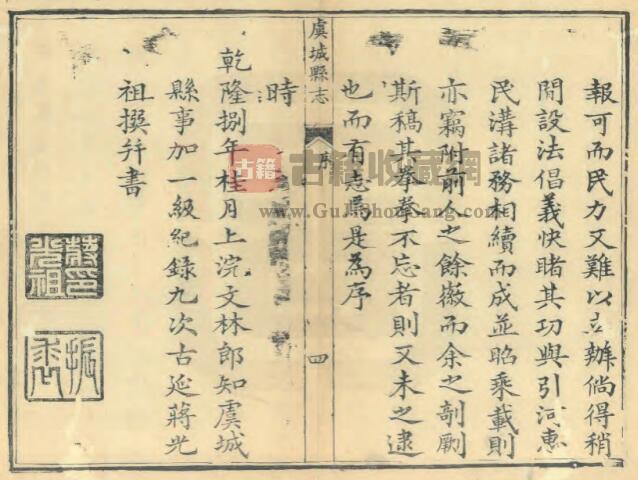 報可而民力又難以立辦倘得稍
開設法倡義快睹其功與引河惠
民溝諸務相續而成並昭乘載則
亦竊附前人之餘徽而余之剞劂
斯稿其拳拳不忘者則又未之逮
也而有志焉是為序
虞城縣志
序
四
時
乾隆捌年桂月上浣文林郎知虞城
縣事加一級紀錄九次古延蔣光
祖撰幷書
蔣印光祖
古籍
古籍收藏網
www.GuJiShouCang.com